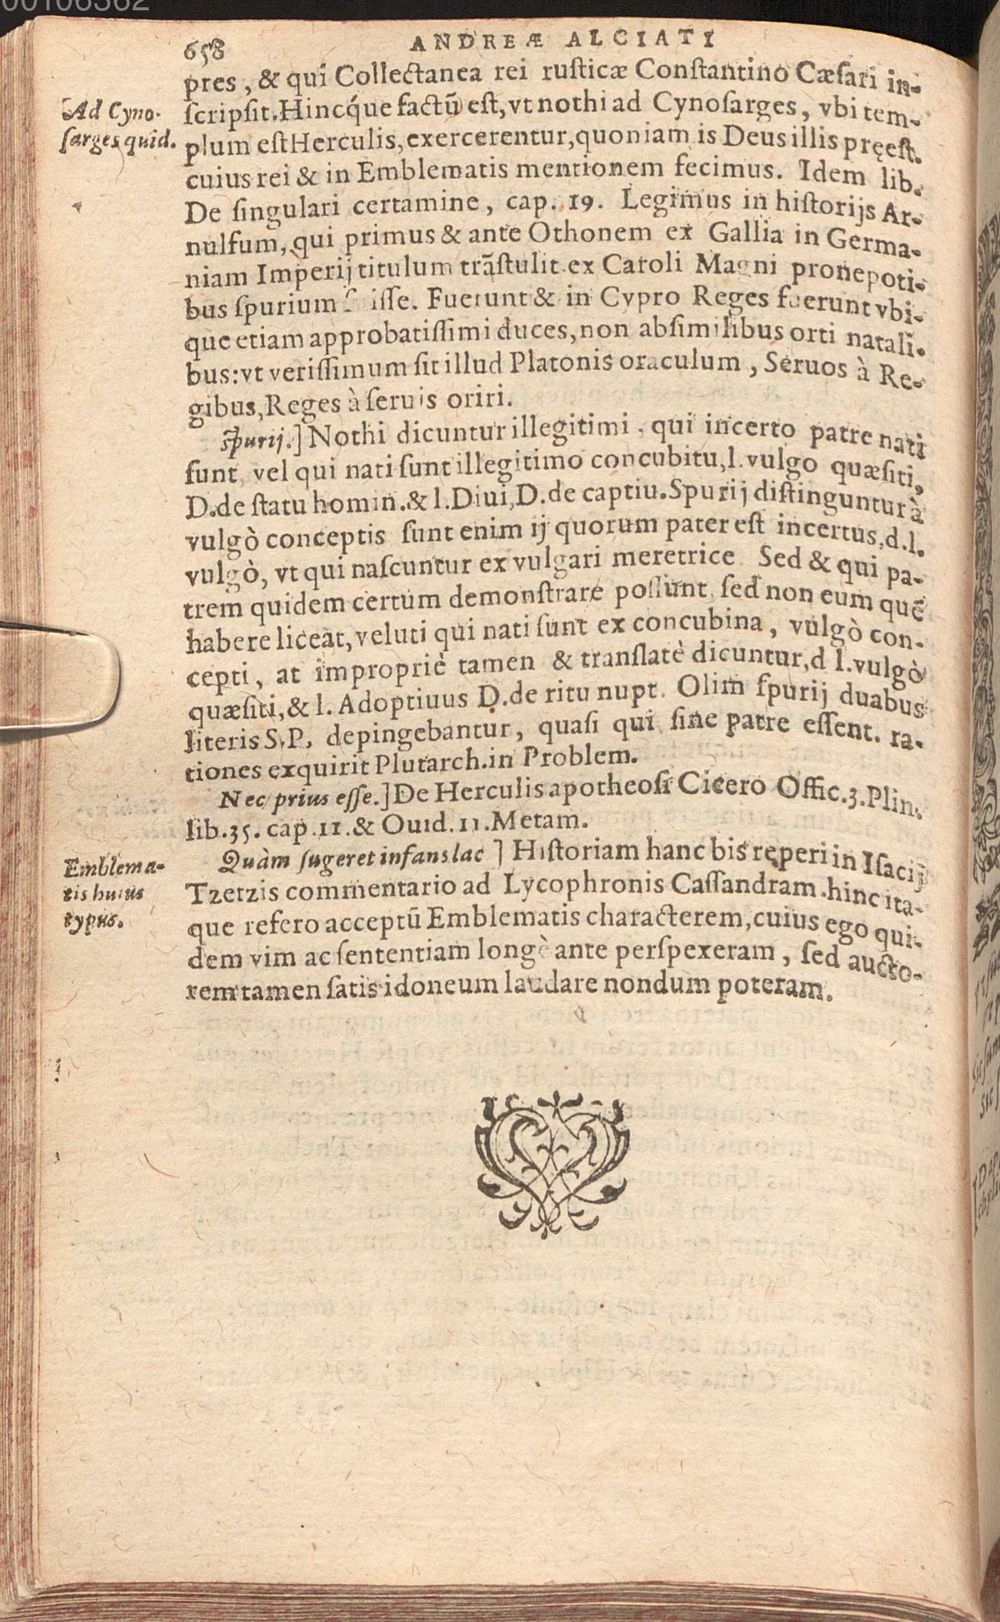 00106362
658 ANDREÆ ALCIATI
pres, & qui Collectanea rei ruſticæ Conſtantino Cæſari in-
ſcripſit. Hincq́ue factũ eſt, vt nothi ad Cynoſarges, vbi tem-
Ad Cyno-
ſarges quid.
plum eſt Herculis, exercerentur, quoniam is Deus illis pręeſt.
cuius rei & in Emblematis mentionem fecimus. Idem lib.
De ſingulari certamine, cap. 19. Legimus in hiſtorijs Ar-
nulfum, qui primus & ante Othonem ex Gallia in Germa-
niam Imperij titulum trãſtulit ex Caroli Magni pronepoti-
bus ſpurium iſſe. Fuerunt & in Cypro Reges fuerunt vbi-
que etiam approbatiſſimi duces, non abſimilibus orti natali-
bus: vt veriſſimum ſit illud Platonis oraculum, Seruos à Re-
gibus, Reges à ſeruis oriri.
Spurij.] Nothi dicuntur illegitimi, qui incerto patre nati
ſunt, vel qui nati ſunt illegitimo concubitu, l. vulgo quæſiti,
D. de ſtatu homin. & l. Diui, D. de captiu. Spurij diſtinguntur à
vulgò conceptis ſunt enim ij quorum pater eſt incertus, d. l.
vulgò, vt qui naſcuntur ex vulgari meretrice. Sed & qui pa-
trem quidem certum demonſtrare poſſunt, ſed non eum quẽ
habere liceat, veluti qui nati ſunt ex concubina, vulgò con-
cepti, at impropriè tamen & tranſlatè dicuntur, d l. vulgò
quæſiti, & l. Adoptiuus D. de ritu nupt. Olim ſpurij duabus
literis S. P. depingebantur, quaſi qui ſine patre eſſent. ra-
tiones exquirit Plutarch. in Problem.
Nec prius eſſe.] De Herculis apotheoſi Cicero Offic. 3. Plin.
lib. 35. cap. 11. & Ouid. 11. Metam.
Quàm ſugeret infans lac] Hiſtoriam hanc bis reperi in Iſacij
Emblema-
tis huius
typus.
Tzetzis commentario ad Lycophronis Caſſandram. hinc ita-
que refero acceptũ Emblematis characterem, cuius ego qui-
dem vim ac ſententiam longè ante perſpexeram, ſed aucto-
rem tamen ſatis idoneum laudare nondum poteram.